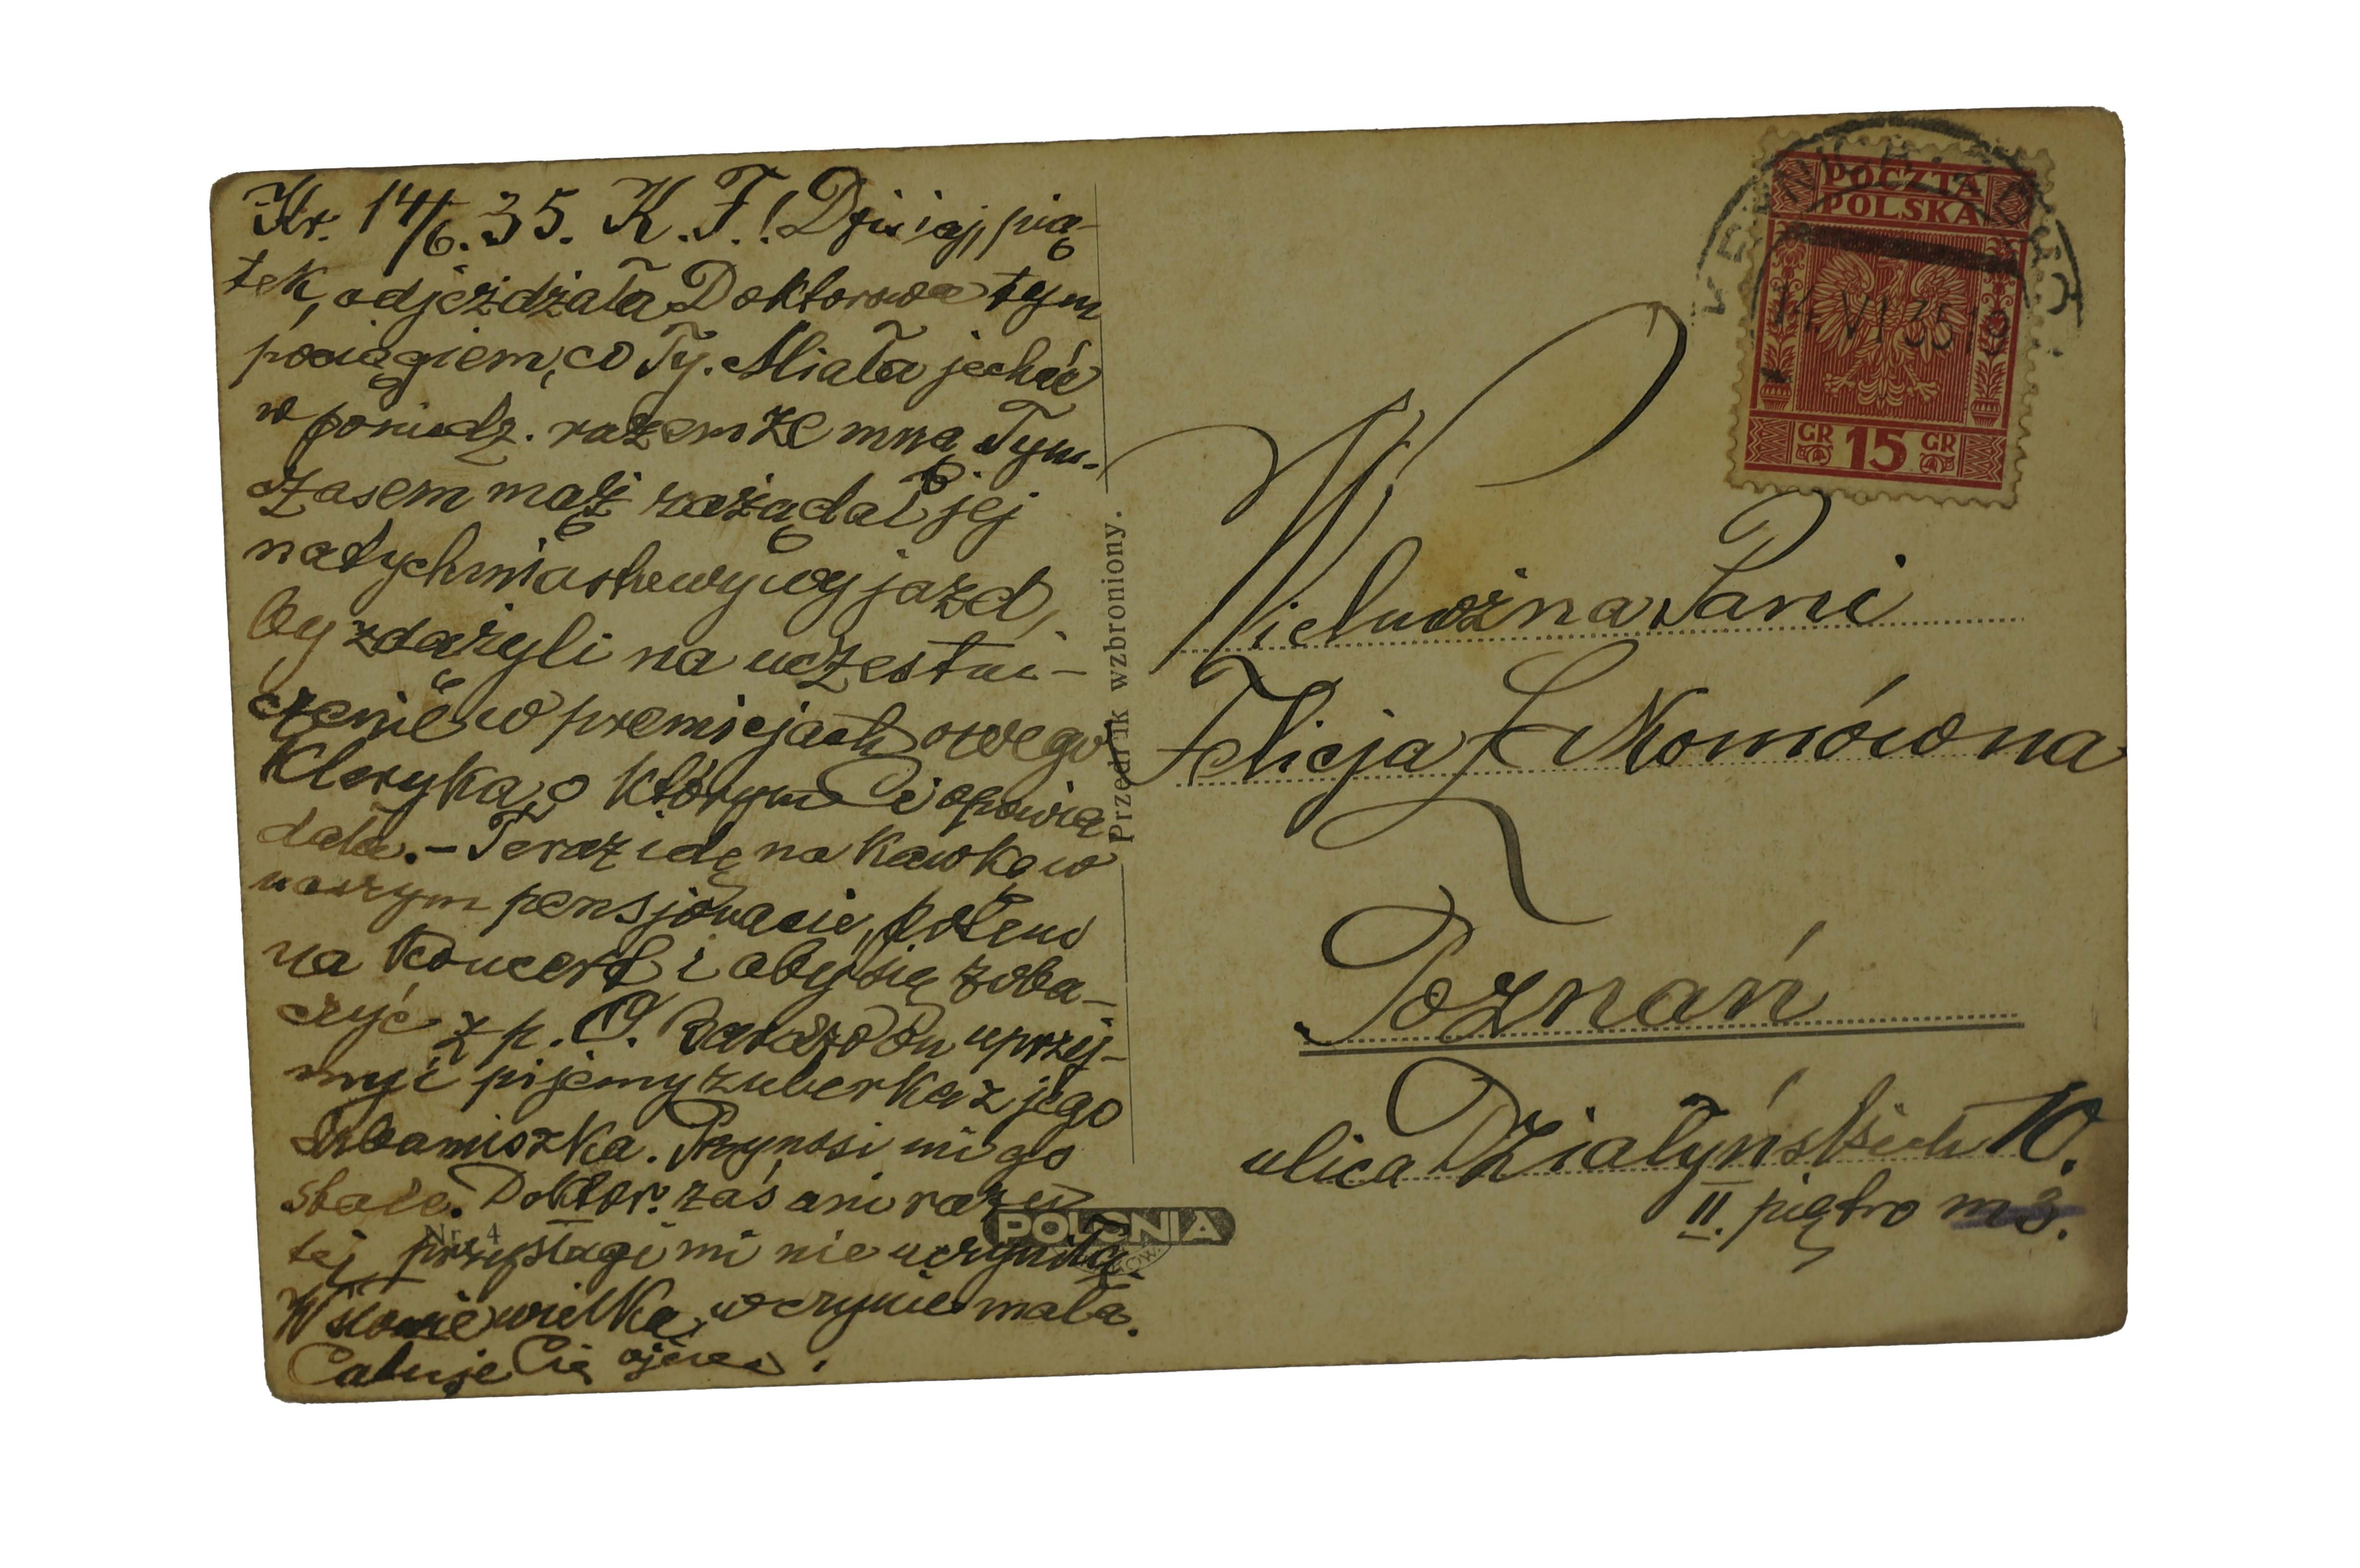 Kr. 14/6. 35. K. F.! Dzisiaj, pią-
tek, odjeżdżała Doktorowa tym
pociągiem, co Ty. Miała jechać
w poniedz. razem ze mną. Tym-
czasem mąż zażądał jej
natychmiastowy wyjazd,
by zdążyli na uczestni-
czenie w premicjach owego
kleryka, o którym Ci opowia-
dała. – Teraz idę na kawkę w
naszym pensjonacie, potem
na koncert i aby się zoba-
czyć z p. O. Bardzo On uprzej-
my i pijemy zuberka z jego
kubaniszka. Przynosi mi go
stale. Doktor. zaś ani razu
tej przysługi mi nie uczyniła.
W słowie wielka, w czynie mała.
Całuję Cię
Przedruk wzbroniony.
Nr. 4
POLONIA
POCZTA
POLSKA
GR 15 GR
14. VI 35 19
Wielmożna Pani
Felicja
Poznań
ulica Działyńskich 10.
II. piętro m 3.